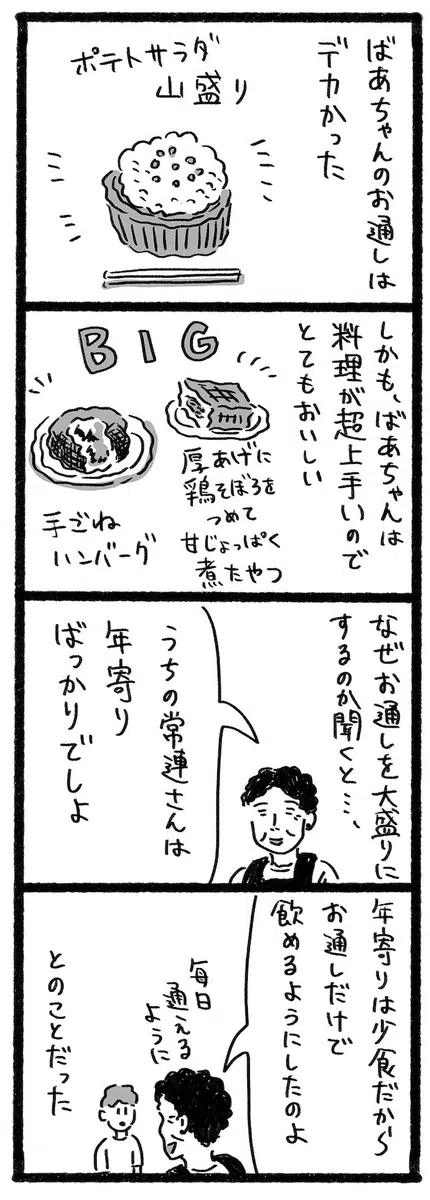 ばあちゃんのお通しは
デカかった
ポテトサラダ
山盛り
しかも、ばあちゃんは
料理が超上手いので
とてもおいしい
BIG
厚あげに
鶏そぼろを
つめて
甘じょっぱく
煮たやつ
手ごね
ハンバーグ
なぜお通しを大盛りに
するのか聞くと…、
うちの常連さんは
年寄り
ばっかりでしょ
年寄りは少食だから
お通しだけで
飲めるようにしたのよ
毎日
通える
ように
とのことだった